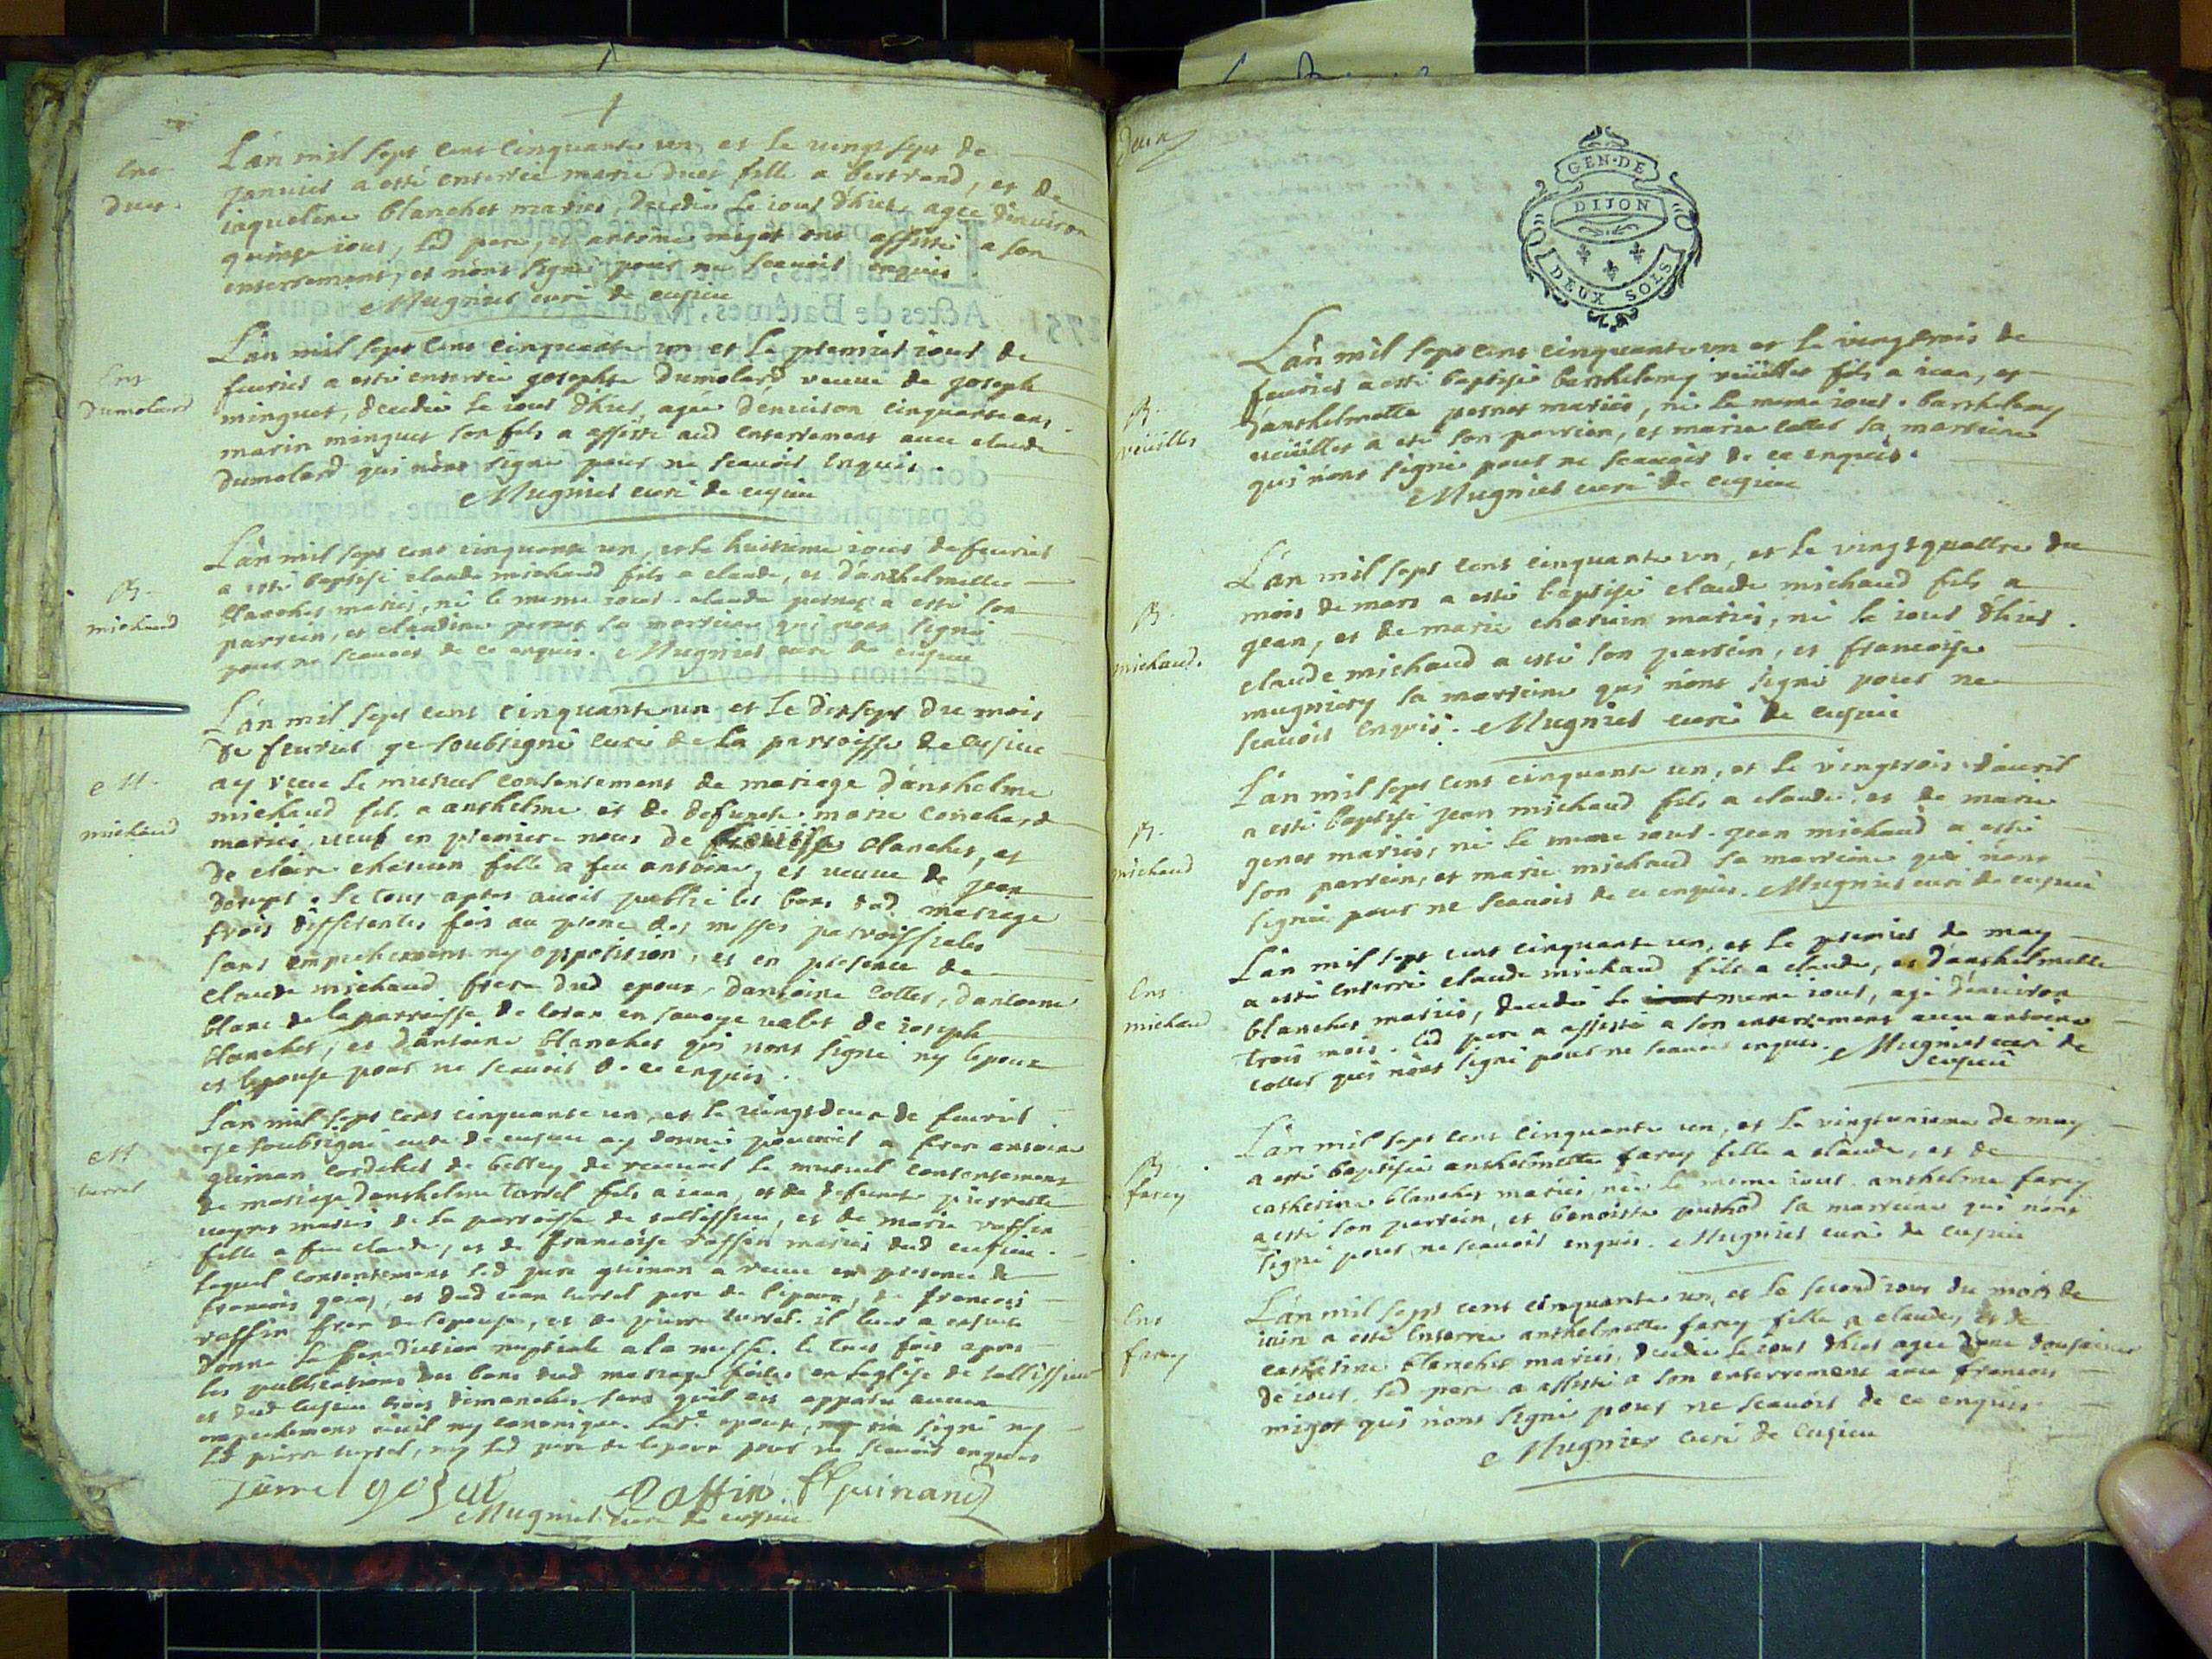 Lan mil sept cent cinquante un et le vingt sept de
janvier a esté enterrée marie duct fille a bertrand, et de
jaqueline blanchet mariés, decedée le jour d'hier agée denviron
quinze jours, led pere, et antoine migot ont assisté a son
enterrement, et n'ont signé pour ne scavoir enquis
Mugnier curé de cusieu
Ent
dumolard
Lan mil sept cent cinquante un et le premier jour de
fevrier a esté enterrée josephte dumolard veuve de joseph
minguet, decedée le jour d'hier, agée denviron cinquante ans
marin minguet son fils a assisté aud enterrement avec claude
dumolard qui n'ont signé pour ne scavoir enquis.
Mugnier curé de cusieu
B.
michaud
Lan mil sept cent cinquante un, et le huitieme jour de fevrier
a esté baptisé claude michaud fils a claude, et d'anthelmette
blanchet mariés, né le meme jour. claude pernet a esté son
parrein, et claudine pernet sa marreine qui n'ont signé
pour ne scavoir de ce enquis. Mugnier curé de cusieu
M.
michaud
Lan mil sept cent cinquante un et le dixsept du mois
de fevrier je soubsigné curé de la parroisse de cusieu
ay receu le mutuel consentement de mariage d'anthelme
michaud fils a anthelme et de defunte marie
mariés, veuf en premiere noces de blanchet, et
de claire charvin fille a feu antoine, et veuve de jean
le tout apres avoir publié les bans dud mariage
trois differentes fois au prone des messes parroissiales
sans empechement ny opposition, et en presence de
claude michaud frere dud epoux, dantoine collet, dantoine
blanc de la parroisse de en savoye valet de joseph
blanchet, et dantoine blanchet qui n'ont signé ny lepoux
et lepouse pour ne scavoir de ce enquis.
M
turrel
Lan mil sept cent cinquante un, et le vingtdeux de fevrier
je soubsigné curé de cusieu ay donné pouvoir a frere antoine
guinan cordelier de belley de recevoir le mutuel consentement
de mariage danthelme turrel fils a jean, et de defunte pierrette
mariés de la parroisse de tallissieu, et de marie raffin
fille a feu claude, et de francoise raffin mariés dud cusieu.
lequel consentement led pere guinan a receu en presence de
francois , et dud jean turrel pere de lepoux, de francois
raffin frere de lepouse, et de pierre turrel. il leur a ensuite
donné la benediction nuptiale a la messe. le tout fait apres
les publications des bans dud mariage faites en leglise de tallissieu
et dud cusieu trois dimanches sans quil ait apparu aucun
empechement civil ny canonique. lad epouse, n'a signé ny
led pierre turrel, ny led pere de lepoux pour ne scavoir enquis
Turrel Raffin f guinand
Mugnier curé de cusieu
Deux
GEN·DE
DIJON
DEUX SOLS
B.
veuillet
Lan mil sept cent cinquante un et le vingt trois de
fevrier a esté baptisé barthelemy veuillet fils a jean, et
d'anthelmette pernet mariés, né le meme jour. barthelemy
veuillet a esté son parrien, et marie collet sa marreine
qui n'ont signé pour ne scavoir de ce enquis.
Mugnier curé de cusieu
B.
michaud.
Lan mil sept cent cinquante un, et le vingtquattre du
mois de mars a esté baptisé claude michaud fils a
jean, et de marie charvin mariés, né le jour d'hier.
claude michaud a esté son parrein, et francoise
mugniery sa marreine qui n'ont signé pour ne
scavoir enquis. Mugnier curé de cusieu
B.
michaud
Lan mil sept cent cinquante un, et le vingttrois d'avril
a esté baptisé jean michaud fils a claude, et de marie
genet mariés, né le meme jour. jean michaud a esté
son parrein, et marie michaud sa marreine qui n'ont
signé pour ne scavoir de ce enquis. Mugnier curé de cusieu
Ent
michaud
Lan mil sept cent cinquante un, et le premier de may
a esté enterré claude michaud fils a claude, et d'anthelmette
blanchet mariés, decedé le meme jour, agé denviron
trois mois. led pere a assisté a son enterrement avec antoine
collet qui n'ont signé pour ne scavoir enquis. Mugnier curé de
cusieu
B
farcy
Lan mil sept cent cinquante un, et le vingtunieme de may
a esté baptisée anthelmette farcy fille a claude, et de
catherine blanchet mariés, née le meme jour. anthelme farcy
a esté son parrein, et benoiste puthod sa marreine qui n'ont
signé pour ne scavoir enquis. Mugnier curé de cusieu
Ent
farcy
Lan mil sept cent cinquante un, et le second jour du mois de
juin a esté enterrée anthelmette farcy fille a claude, et de
catherine blanchet mariés, decedée le jour d'hier agée d'une douzaine
de jour. led pere a assisté a son enterrement avec francois
migot qui n'ont signé pour ne scavoir de ce enquis
Mugnier curé de cusieu